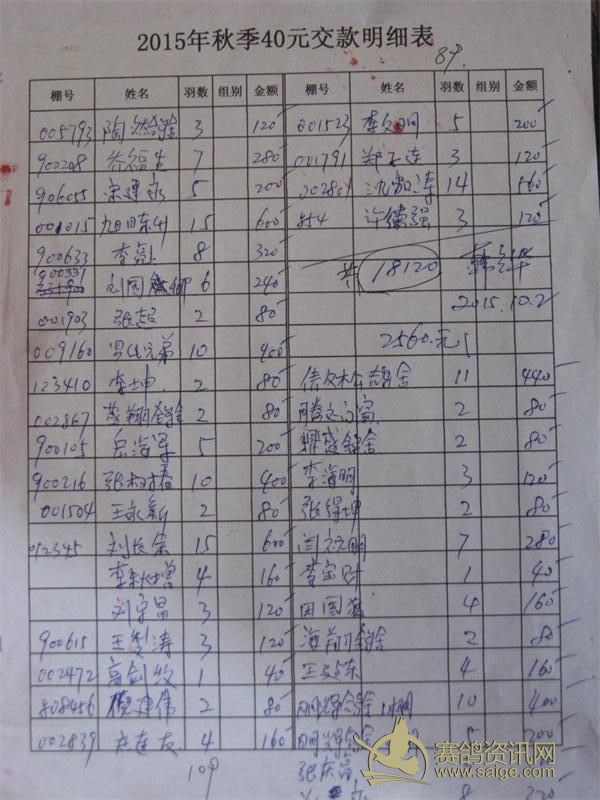 2015年秋季40元交款明细表
89.
棚号 姓名 羽数 组别 金额 棚号 姓名 羽数 组别 金额
005793 3 120 201523 李文明 5 200
900208 乔福生 7 280 001791 3 120
906055 宋建永 5 200 002801 14 560
001015 旭日东升 15 600 854 许德强 3 120
900633 李亮 8 320
900331 刘国卿 6 240 共 18120
001903 张超 2 80 2015.10.2
009160 兄弟 10 400 2560.元
123410 李坤 2 80 信友松鸽舍 11 440
002867 翔鸽舍 2 80 腾飞 2 80
900105 5 200 鼎盛鸽舍 2 80
900216 张树春 10 400 李海明 3 120
001504 王永新 2 80 张得坤 2 80
012345 刘长余 15 600 闫文明 7 280
李秋增 4 160 1 40
刘宇昌 3 120 田国 4 160
900615 王学涛 3 120 海翔鸽舍 2 80
002472 高剑牧 1 40 王 4 160
808456 建伟 2 80 10 400
002839 连友 4 160 200
109
张庆昌
8 320
赛鸽资讯网
www.saige.com